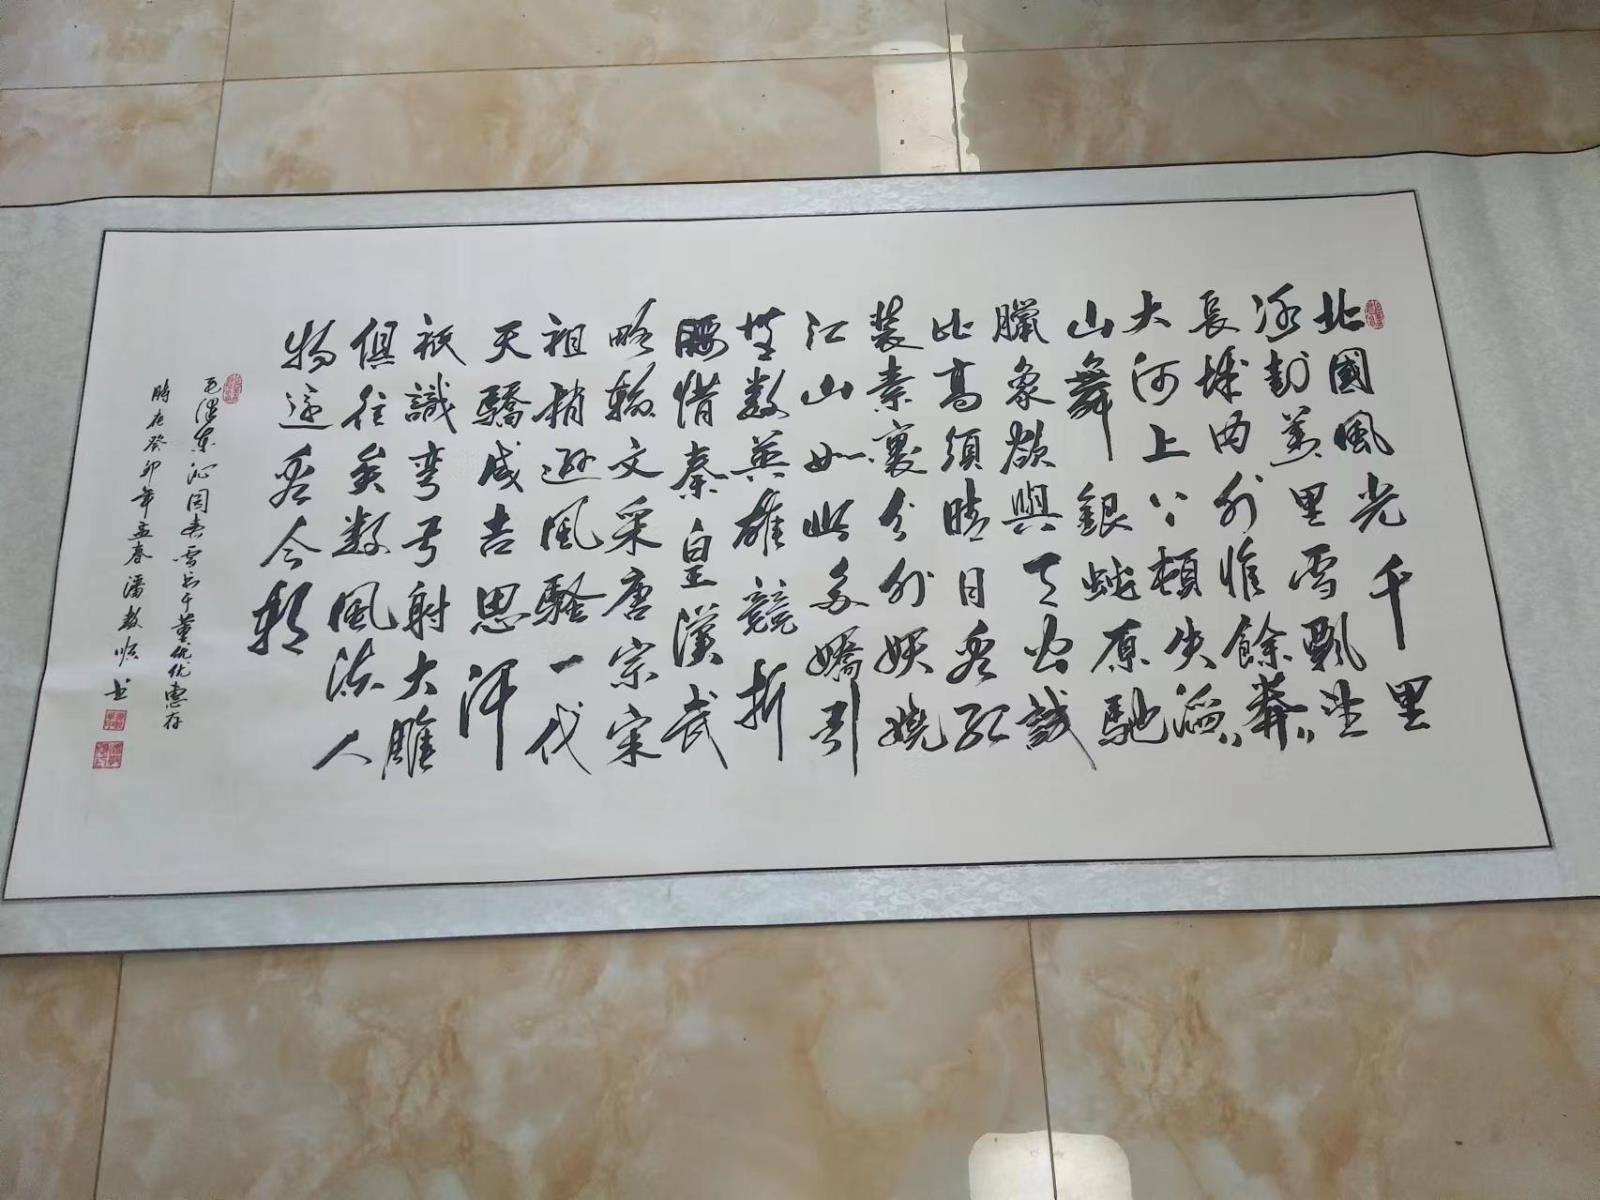 北國風光千里
冰封萬里雪飄望
長城内外惟餘莽〻
大河上下頓失滔〻
山舞銀蛇原馳
臘象欲與天公試
比高須晴日看紅
裝素裹分外妖嬈
江山如此多嬌引
無數英雄競折
腰惜秦皇漢武
略輸文采唐宗宋
祖稍遜風騷一代
天驕成吉思汗
祇識彎弓射大雕
俱往矣數風流人
物還看今朝
毛澤東沁園春雪 董优优惠存
時在癸卯年孟春潘教順书